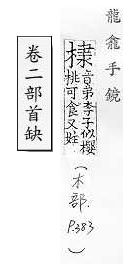 龍龕手鏡
棣音弟李子似櫻
桃可食又姓
(木部. P.383)
卷二部首缺